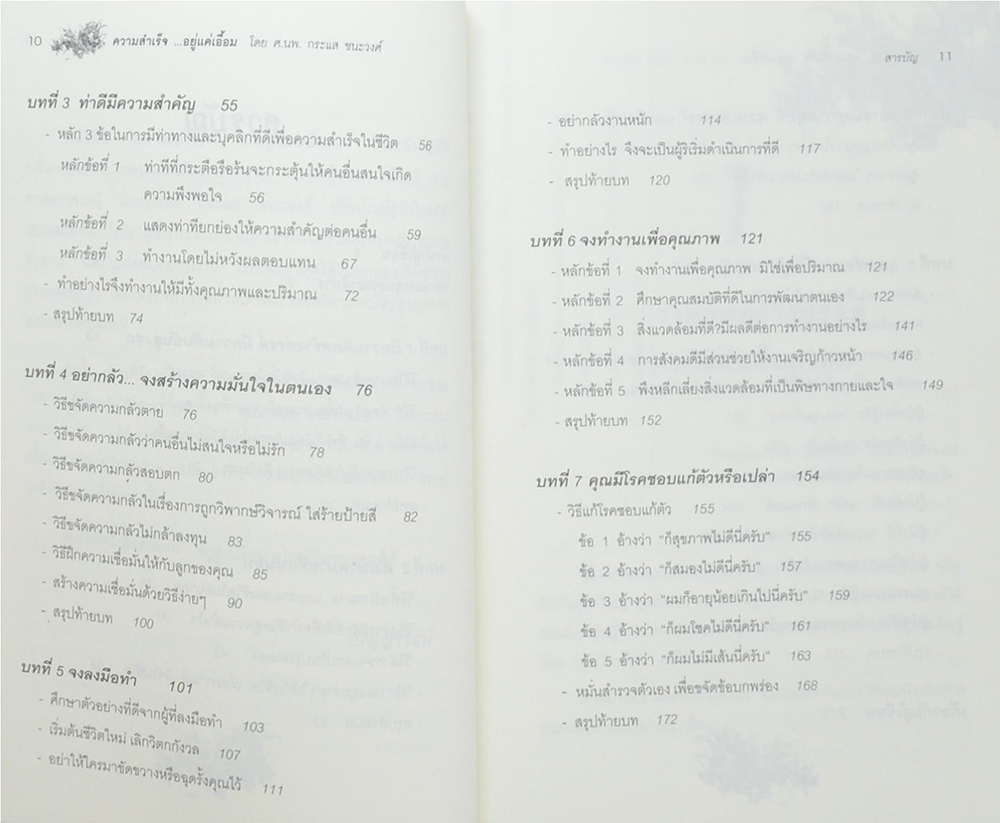 10 ความสำเร็จ ...อยู่แค่เอื้อม โดย ศ.นพ. กระแส ชนะวงศ์
บทที่ 3 ท่าดีมีความสำคัญ 55
- หลัก 3 ข้อในการมีท่าทางและบุคลิกที่ดีเพื่อความสำเร็จในชีวิต 56
หลักข้อที่ 1 ท่าทีที่กระตือรือร้นจะกระตุ้นให้คนอื่นสนใจเกิด
ความพึงพอใจ 56
หลักข้อที่ 2 แสดงท่าทียกย่องให้ความสำคัญต่อคนอื่น 59
หลักข้อที่ 3 ทำงานโดยไม่หวังผลตอบแทน 67
- ทำอย่างไรจึงทำงานให้มีทั้งคุณภาพและปริมาณ 72
- สรุปท้ายบท 74
บทที่ 4 อย่ากลัว... จงสร้างความมั่นใจในตนเอง 76
- วิธีขจัดความกลัวตาย 76
- วิธีขจัดความกลัวว่าคนอื่นไม่สนใจหรือไม่รัก 78
- วิธีขจัดความกลัวสอบตก 80
- วิธีขจัดความกลัวในเรื่องการถูกวิพากษ์วิจารณ์ ใส่ร้ายป้ายสี 82
- วิธีขจัดความกลัวไม่กล้าลงทุน 83
- วิธีฝึกความเชื่อมั่นให้กับลูกของคุณ 85
- สร้างความเชื่อมั่นด้วยวิธีง่ายๆ 90
- สรุปท้ายบท 100
บทที่ 5 จงลงมือทำ 101
- ศึกษาตัวอย่างที่ดีจากผู้ที่ลงมือทำ 103
- เริ่มต้นชีวิตใหม่ เลิกวิตกกังวล 107
- อย่าให้ใครมาขัดขวางหรือฉุดรั้งคุณไว้ 111
สารบัญ 11
- อย่ากลัวงานหนัก 114
- ทำอย่างไร จึงจะเป็นผู้ริเริ่มดำเนินการที่ดี 117
- สรุปท้ายบท 120
บทที่ 6 จงทำงานเพื่อคุณภาพ 121
- หลักข้อที่ 1 จงทำงานเพื่อคุณภาพ มิใช่เพื่อปริมาณ 121
- หลักข้อที่ 2 ศึกษาคุณสมบัติที่ดีในการพัฒนาตนเอง 122
- หลักข้อที่ 3 สิ่งแวดล้อมที่ดี?มีผลดีต่อการทำงานอย่างไร 141
- หลักข้อที่ 4 การสังคมดีมีส่วนช่วยให้งานเจริญก้าวหน้า 146
- หลักข้อที่ 5 พึงหลีกเลี่ยงสิ่งแวดล้อมที่เป็นพิษทางกายและใจ 149
- สรุปท้ายบท 152
บทที่ 7 คุณมีโรคชอบแก้ตัวหรือเปล่า 154
- วิธีแก้โรคชอบแก้ตัว 155
ข้อ 1 อ้างว่า “ก็สุขภาพไม่ดีนี่ครับ” 155
ข้อ 2 อ้างว่า “ก็สมองไม่ดีนี่ครับ” 157
ข้อ 3 อ้างว่า “ผมก็อายุน้อยเกินไปนี่ครับ” 159
ข้อ 4 อ้างว่า “ก็ผมโชคไม่ดีนี่ครับ” 161
ข้อ 5 อ้างว่า “ก็ผมไม่มีเส้นนี่ครับ” 163
- หมั่นสำรวจตัวเอง เพื่อขจัดข้อบกพร่อง 168
- สรุปท้ายบท 172